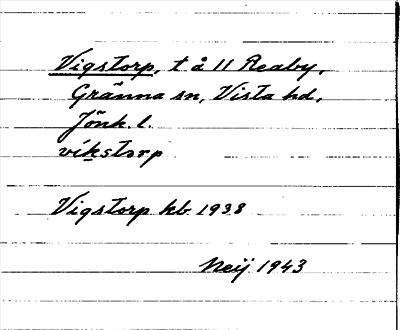 Vigstorp, t å 11 Reaby,
Gränna sn, Vista hd,
Jönk. l.
vikstorp
Vigstorp kb 1938
Neij 1943